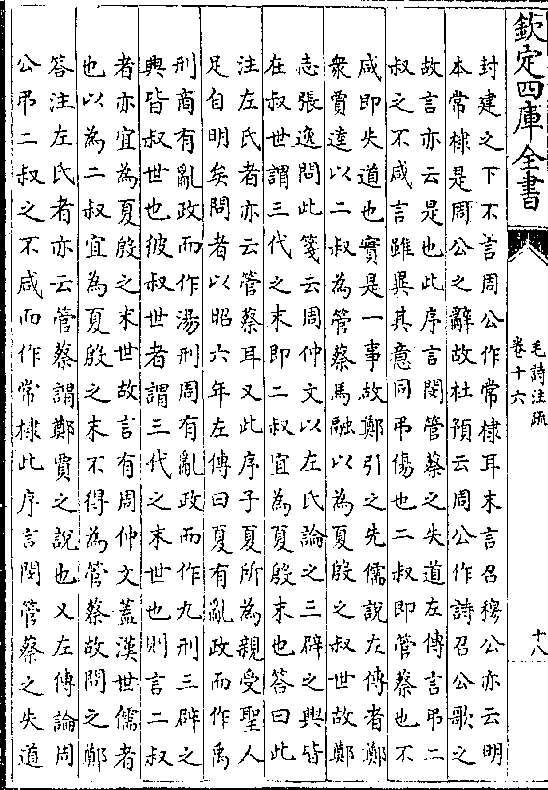 欽定四庫全書
毛詩注疏
卷十六
十八
封建之下不言周公作常棣耳末言召穆公亦云明
本常棣是周公之辭故杜預云周公作詩召公歌之
故言亦云是也此序言閔管蔡之失道左傳言弔二
叔之不咸言雖異其意同弔傷也二叔即管蔡也不
咸即失道也實是一事故鄭引之先儒說左傳者鄭
衆賈逵以二叔為管蔡馬融以為夏殷之叔世故鄭
志張逸問此箋云周仲文以左氏論之三辟之興皆
在叔世謂三代之末即二叔宜為夏殷末也答曰此
注左氏者亦云管蔡耳又此序子夏所為親受聖人
足自明矣問者以昭六年左傳曰夏有亂政而作禹
刑商有亂政而作湯刑周有亂政而作九刑三辟之
興皆叔世也彼叔世者謂三代之末世也則言二叔
者亦宜為夏殷之末世故言有周仲文蓋漢世儒者
也以為二叔宜為夏殷之末不得為管蔡故問之鄭
答注左氏者亦云管蔡謂鄭賈之說也又左傳論周
公弔二叔之不咸而作常棣此序言閔管蔡之失道